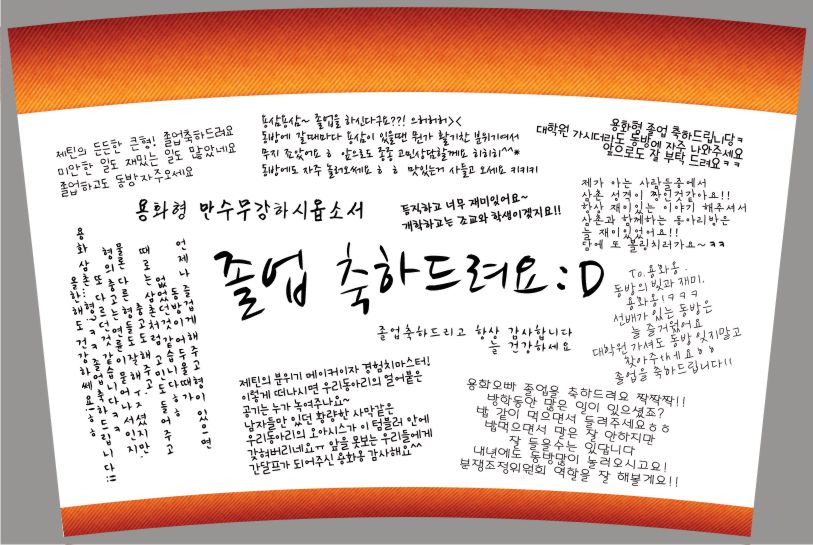 제틴의 든든한 큰형! 졸업축하드려요
미안한 일도 재밌는 일도 많았네요
졸업하고도 동방자주오세요
용삼용삼~ 졸업을 하신다구요??! 으허허허><
동방에 갈때마다 용삼이 있을땐 뭔가 활기찬 분위기여서
무지 좋았어요 ㅎ 앞으로도 종종 고민상담할께요 히히히^^*
동방에도 자주 놀러오세요 ㅎ ㅎ 맛있는거 사들고 오세요 키키키
용화형 졸업 축하드립니당ㅋ
대학원 가시더라도 동방에 자주 나와주세요
앞으로도 잘 부탁 드려요ㅋㅋ
용화형 만수무강하시옵소서
튜직하고 너무 재미있어요~
개학하고는 조교와 학생이겠지요!!
제가 아는 사람들중에서
삼촌 성격이 짱인것같아요!!
항상 재미있는 이야기 해주셔서
삼촌과 함께하는 동아리방은
늘 재미있었어요!!
담에 또 볼링치러가요~ㅋㅋ
졸업 축하드려요:D
언제나 즐겁게 해주고 형이 있으면
동방이 어두울때가
없었던것 같습니다ㅎㅎ
때로는 삼촌처럼 고민도 들어주고
충고도 해주고.
물론 다른 형들도 잘해주셨지만.
형의 충고는 연륜이 묻어나서인지
또 다르던것 같았습니다ㅋㅋ
용화삼촌...형ㅋㅋ졸업축하드립니다!!!
올한해도 건강하쎄요!ㅎㅎ
졸업축하드리고 항상 감사합니다
늘 건강하세요
To.용화옹.
동방의 빛과 재미.
용화옹!ㅋㅋㅋ
선배가 있는 동방은
늘 즐거웠어요
대학원 가셔도 동방 잊지말고
찾아주세요ㅎㅎ
졸업을 축하드립니다!!
제틴의 분위기 메이커이자 경험치마스터!
이렇게 떠나시면 우리동아리의 얼어붙은
공기는 누가 녹여주나요~
남자들만 있던 황량한 사막같은
우리동아리의 오아시스가 이 텀블러 안에
갇혀버리네요ㅠ 앞을 못보는 우리들에게
간달프가 되어주신 용화옹 감사해요^^
용화오빠 졸업을 축하드려요 짝짝짝!!
방학동안 많은 일이 있으셨죠?
밥 같이 먹으면서 들려주세요ㅎㅎ
밥먹으면서 말은 잘 안하지만
잘 들을수는 있답니다
내년에도 동방많이 놀러오시고요!
분쟁조정위원회 역할을 잘 해볼게요!!